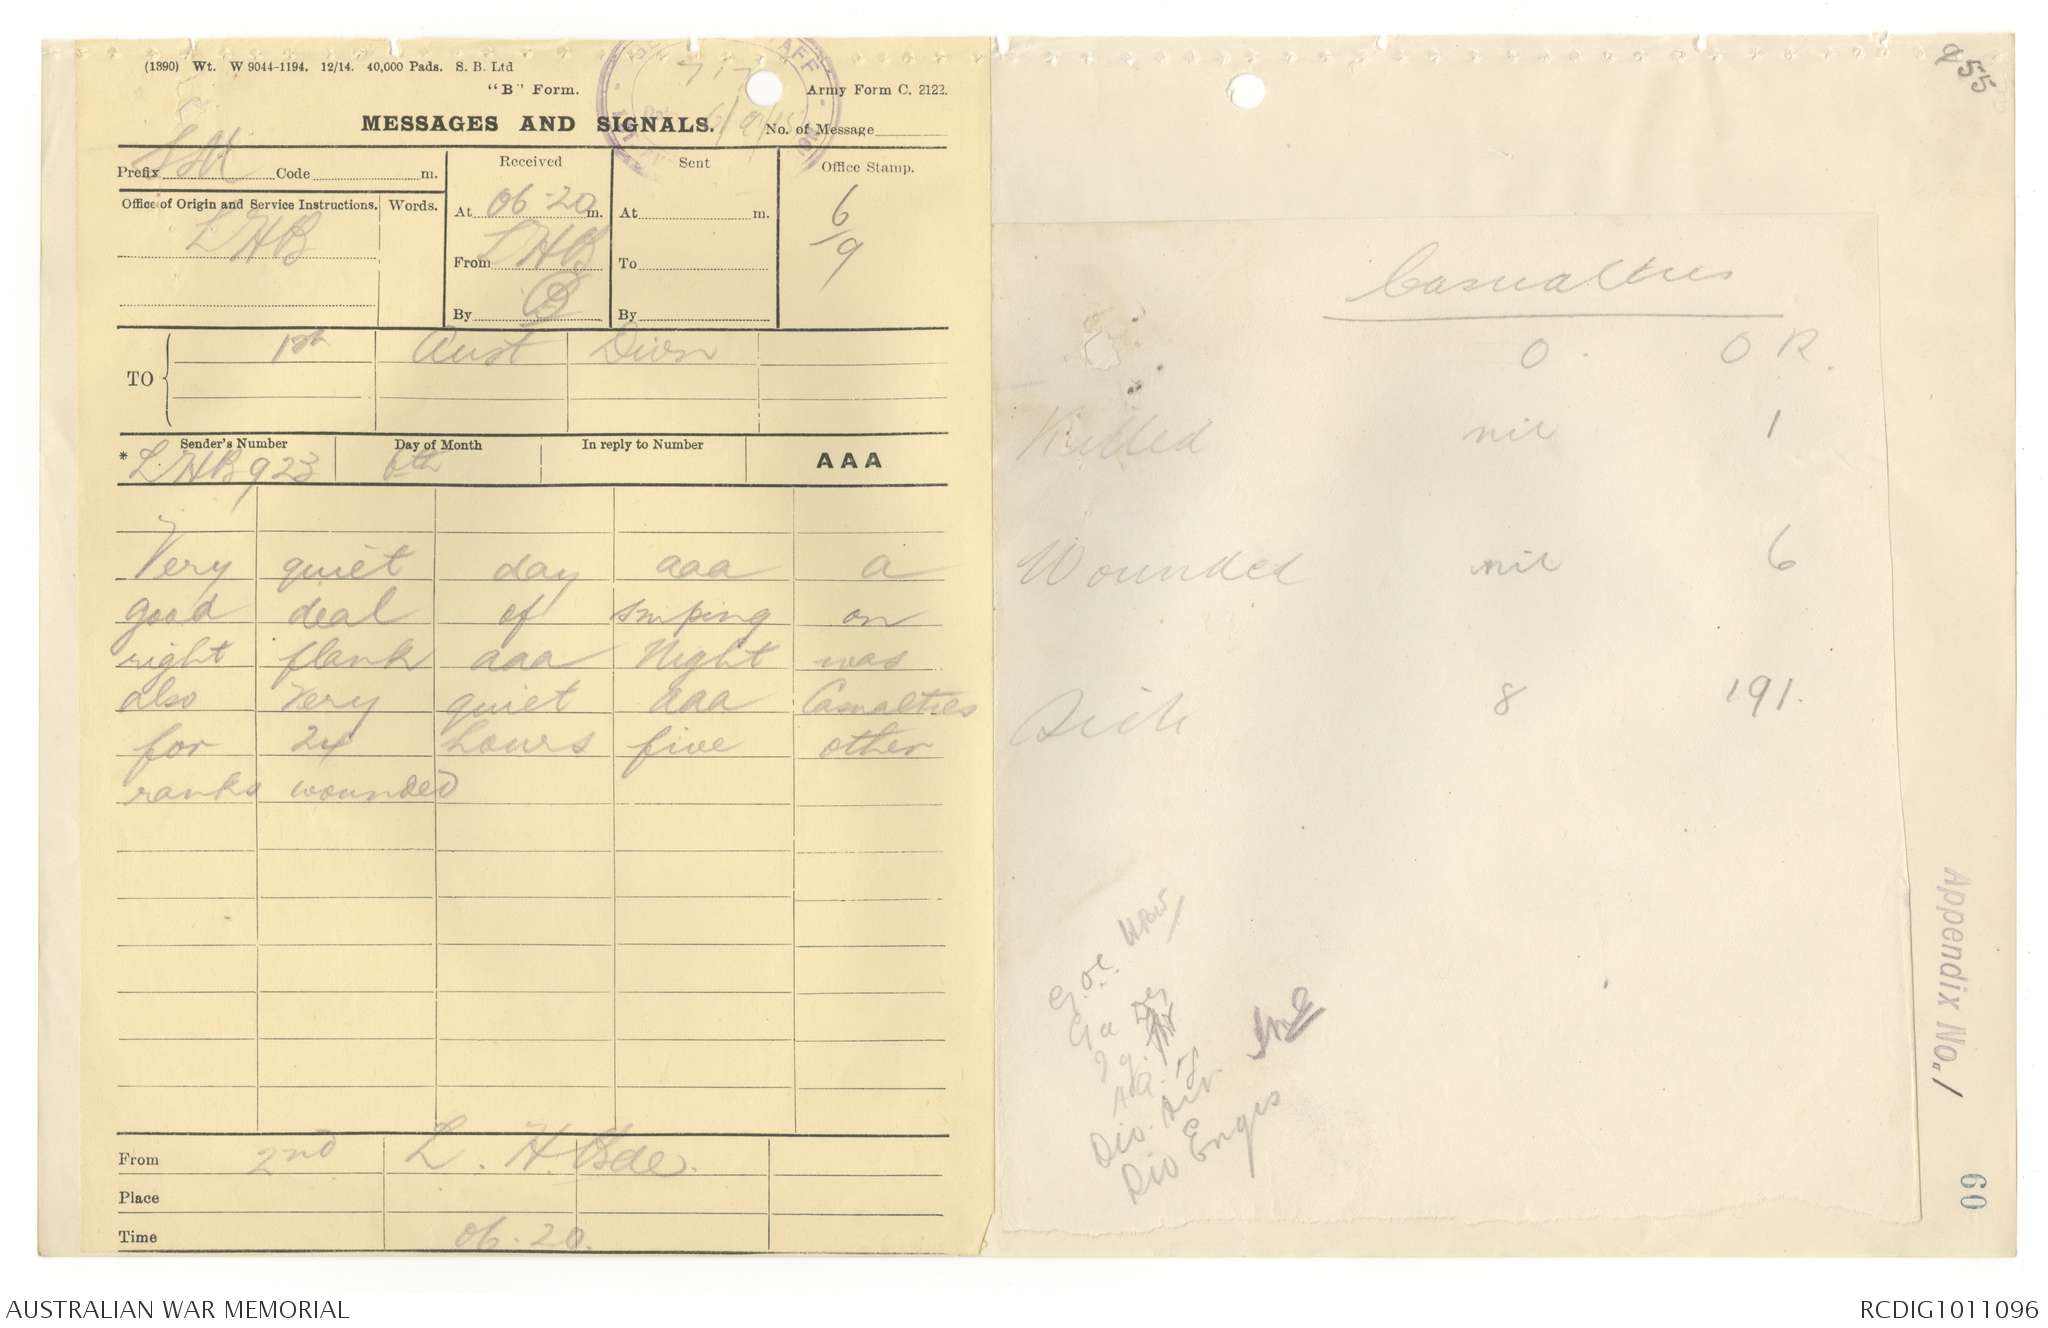 (1390) Wt. W 9044-1194. 12/14. 40,000 Pads. S. B. Ltd
"B" Form.
Army Form C. 2122.
MESSAGES AND SIGNALS.
No. of Message
7.7
6/9/15
Prefix SM Code m.
Received
Sent
Office Stamp.
Office of Origin and Service Instructions.
Words.
LHB
At 06-20 m.
From LHB
By
At m.
To
By
6/9
TO
1st Aust Divn
Sender's Number
Day of Month
In reply to Number
AAA
* LHB 923
6th
Very quiet day aaa a
good deal of sniping on
right flank aaa Night was
also very quiet aaa Casualties
for 24 hours five other
ranks wounded
From 2nd L. H. Bde.
Place
Time 06.20.
955
Casualties
O. O R.
Killed nil 1
Wounded nil 6
Sick 8 191.
G.O.C.
Div. Art.
Div Engrs
Appendix No. 1
60
AUSTRALIAN WAR MEMORIAL
RCDIG1011096